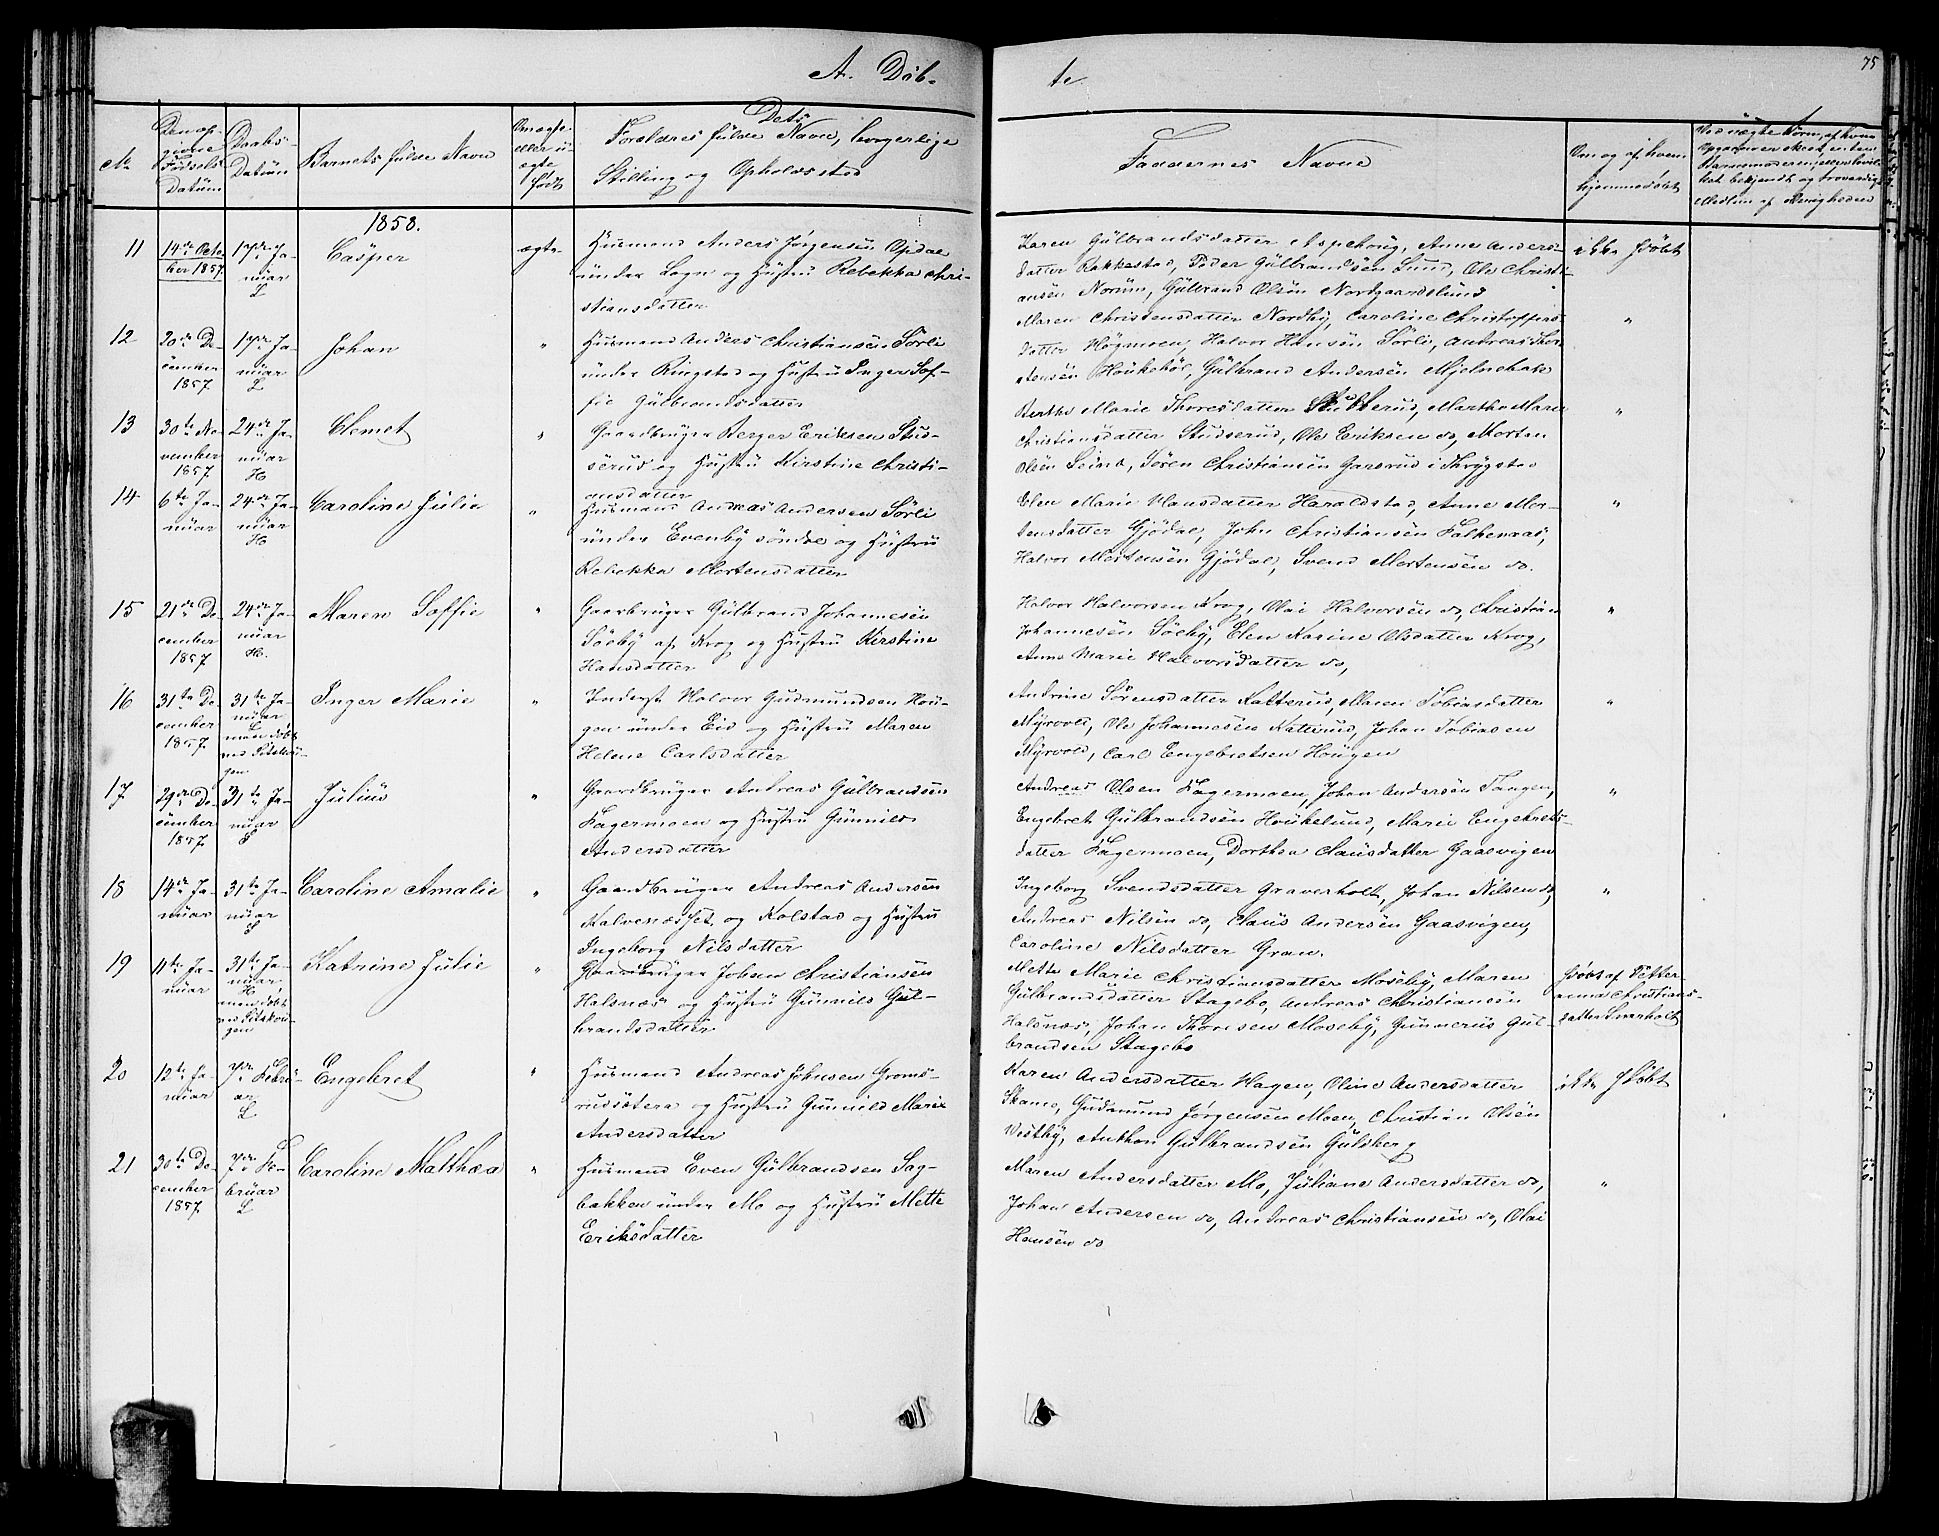 A. Døb-
te
75
No
Den op-
givne
Fødsels
Datum
Daabs-
Datum
Barnets fulde Navn
Om ægte
eller u-
ægte
født
Dets
Forældres fulde Navne, borgerlige
Stilling og Opholdssted
Faddernes Navne
Om og af hvem
hjemmedøbt
1858.
11
14de Octo-
ber 1857.
17de Ja-
nuar
L
Casper
ægte
Huusmand Anders Jørgensen Opdal
under Logn og Hustru Rebekka Chri-
stiansdatter
Karen Gulbrandsdatter Aspehoug, Anne Anders-
datter Rakkestad, Peder Gulbrandsen Lund, Ole Christi-
ansen Norum, Gulbrand Olsen Nordgaardslund
ikke hjdøbt
12
20de De-
cember
1857
17de Ja-
nuar
L
Johan
"
Huusmand Anders Christiansen Sørli
under Ringstad og Hustru Inger Sof-
fie Gulbrandsdatter
Maren Christensdatter Nordby, Caroline Christoffers-
datter Høgmoen, Halvor Hansen Sørli, Andreas Thor-
stensen Houkehøl, Gulbrand Andersen Mjelnebak
"
13
30te No-
vember
1857
24de Ja-
nuar
H
Clemet
"
Gaardbruger Berger Eriksen Stus-
serud og Hustru Kirstine Christi-
ansdatter
Berthe Marie Thoresdatter Studserud, Marthe Marie
Christiansdatter Studserud, Ole Eriksen do, Morten
Olsen Seind, Søren Christiansen Garsrud i Thrygstad
"
14
6te Ja-
nuar
24de Ja-
nuar
H
Caroline Julie
"
Huusmand Andreas Andersen Sørli
under Evenby søndre og Hustru
Rebekka Mortensdatter
Elen Marie Hansdatter Haraldstad, Anne Mor-
tensdatter Gjødal, John Christiansen Falkenæs,
Halvor Mortensen Gjødal, Svend Mortensen do.
"
15
21de De-
cember
1857
24de Ja-
nuar
H.
Maren Soffie
"
Gaardbruger Gulbrand Johannesen
Søeby af Krog og Hustru Kirstine
Hansdatter
Halvor Halvorsen Krog, Olai Halvorsen do, Christian
Johannesen Søeby, Elen Karine Olsdatter Krog,
Anne Marie Halvorsdatter do,
"
16
31te De-
cember
1857
31te Ja-
nuar
L
men døbt
gen
Inger Marie
"
Inderst Halvor Gudmundsen Hou-
gen under Eid og Hustru Maren
Helene Carlsdatter
Andrine Sørensdatter Katterud, Maren Tobiasdatter
Myrvold, Ole Johannesen Katterud, Johan Tobiasen
Myrvold, Carl Engebretsen Hougen
"
17
29de De-
cember
1857
31te Ja-
nuar
S
Julius
"
Gaardbruger Andreas Gulbrandsen
Fagermoen og Hustru Gunnild
Andersdatter
Andreas Olsen Fagermoen, Johan Andersen Tangen,
Engebret Gulbrandsen Houkelund, Marie Engebrets-
datter Fagermoen, Dorthea Clausdatter Gaasvigen
"
18
14de Ja-
nuar
31te Ja-
nuar
S
Caroline Amalie
"
Gaardbruger Andreas Andersen
Kalvenæsset og Kolstad og Hustru
Ingeborg Nilsdatter
Ingeborg Svendsdatter Graverholt, Johan Nilsen do,
Andreas Nilsen do, Claus Andersen Gaasvigen,
Caroline Nilsdatter Gran.
"
19
11te Ja-
nuar
31te Ja-
nuar
H
men døbt
gen
Katrine Julie
"
Gaardbruger Johan Christiansen
Halsnæs og Hustru Gunnild Gul-
brandsdatter
Mette Marie Christiansdatter Moseby, Maren
Gulbrandsdatter Stagebo, Andreas Christiansen
Halsnæs, Johan Thoresen Moseby, Gunnerius Gul-
brandsen Stagebo
hjdøbt af Petter-
anna Christians-
datter Sværholt
20
12te Ja-
nuar
7de Febru-
ar
L
Engebret
"
Huusmand Andreas Johnsen Groms-
rudsætera og Hustru Gunnild Marie
Andersdatter
Karen Andersdatter Hagen, Oline Andersdatter
Skamo, Gudmund Jørgensen Moen, Christian Olsen
Westby, Anthon Gulbrandsen Gulsberg
ikke hjdøbt
21
30te De-
cember
1857
7de Fe-
bruar
L
Caroline Mathea
"
Huusmand Even Gulbrandsen Sag-
bakken under Mo og Hustru Mette
Eriksdatter
Maren Andersdatter Mo, Juliane Andersdatter do,
Johan Andersen do, Andreas Christiansen do, Olai
Hansen do
"